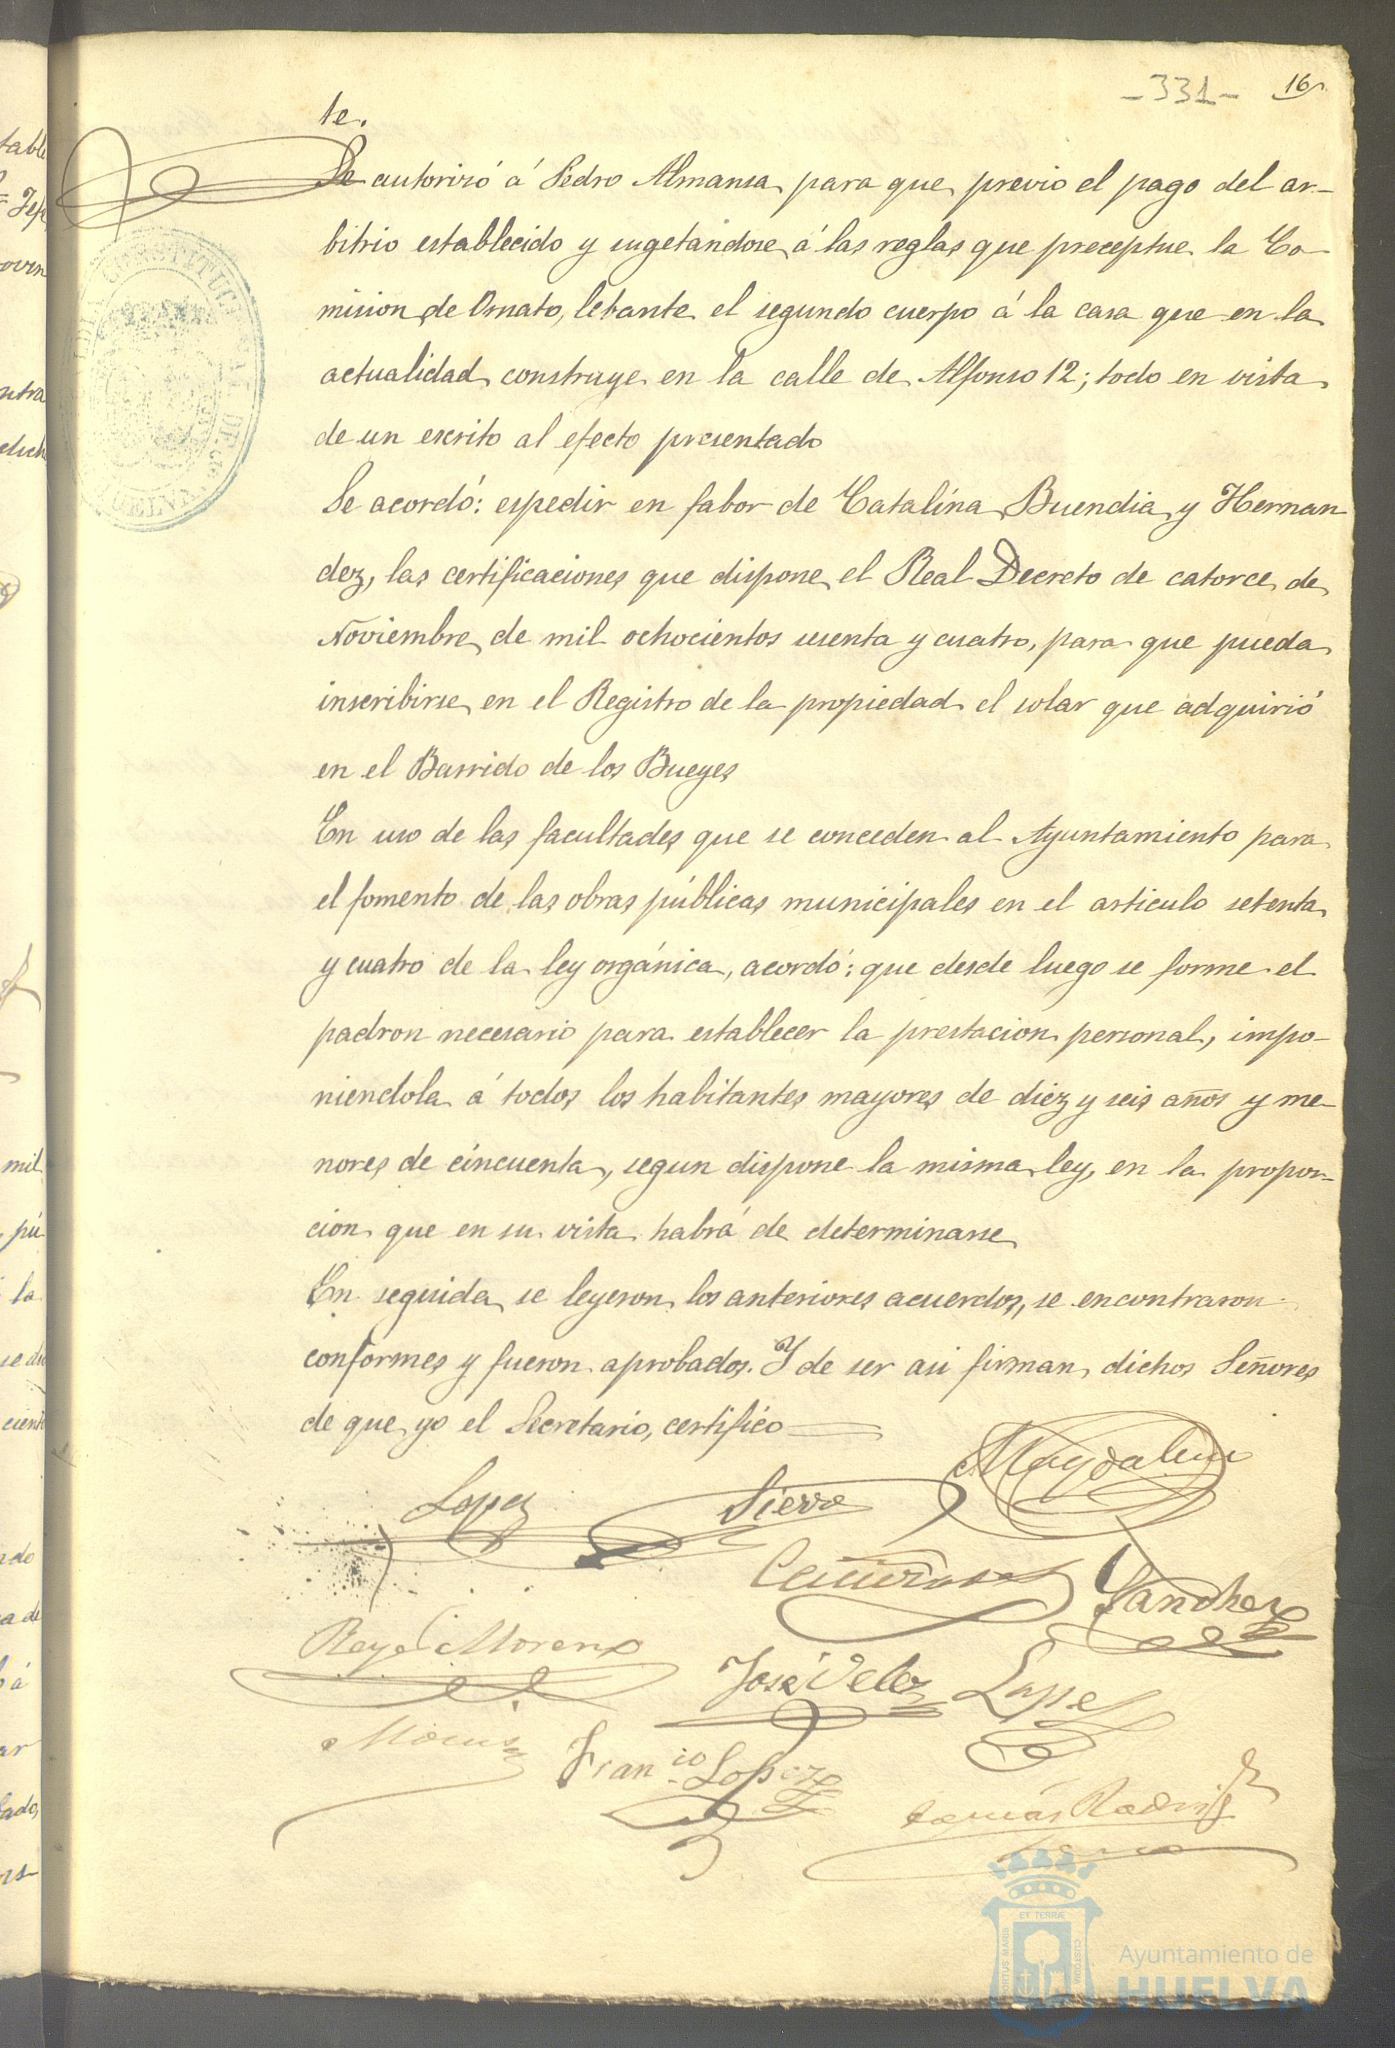 -331- 16
te.
Se autorizó á Pedro Almansa para que, previo el pago del ar-
bitrio establecido y sugetandose á las reglas que preceptue la Co-
mision de Ornato, lebante el segundo cuerpo á la casa que en la
actualidad construye en la calle de Alfonso 12; todo en vista
de un escrito al efecto presentado
Se acordó: espedir en fabor de Catalina Buendia y Hernan
dez, las certificaciones que dispone el Real Decreto de catorce de
Noviembre de mil ochocientos sesenta y cuatro, para que pueda
inscribirse en el Registro de la propiedad el solar que adquirió
en el Barrido de los Bueyes
En uso de las facultades que se conceden al Ayuntamiento para
el fomento de las obras públicas municipales en el articulo setenta
y cuatro de la ley orgánica, acordó: que desde luego se forme el
padron necesario para establecer la prestacion personal, impo-
niendola á todos los habitantes mayores de diez y seis años y me-
nores de cincuenta, segun dispone la misma ley, en la propor-
cion que en su vista habrá de determinarse
En seguida se leyeron los anteriores acuerdos, se encontraron
conformes y fueron aprobados. Y de ser asi firman dichos Señores
de que yo el Secretario, certifico
Lopez Sierra Magdalena
Sanchez
Reyes Moreno
José Velez Lopez
Fran.co Lopez
Tomás Rodrig
PORTUS MARIS ET TERRÆ CUSTODIA
Ayuntamiento de
HUELVA